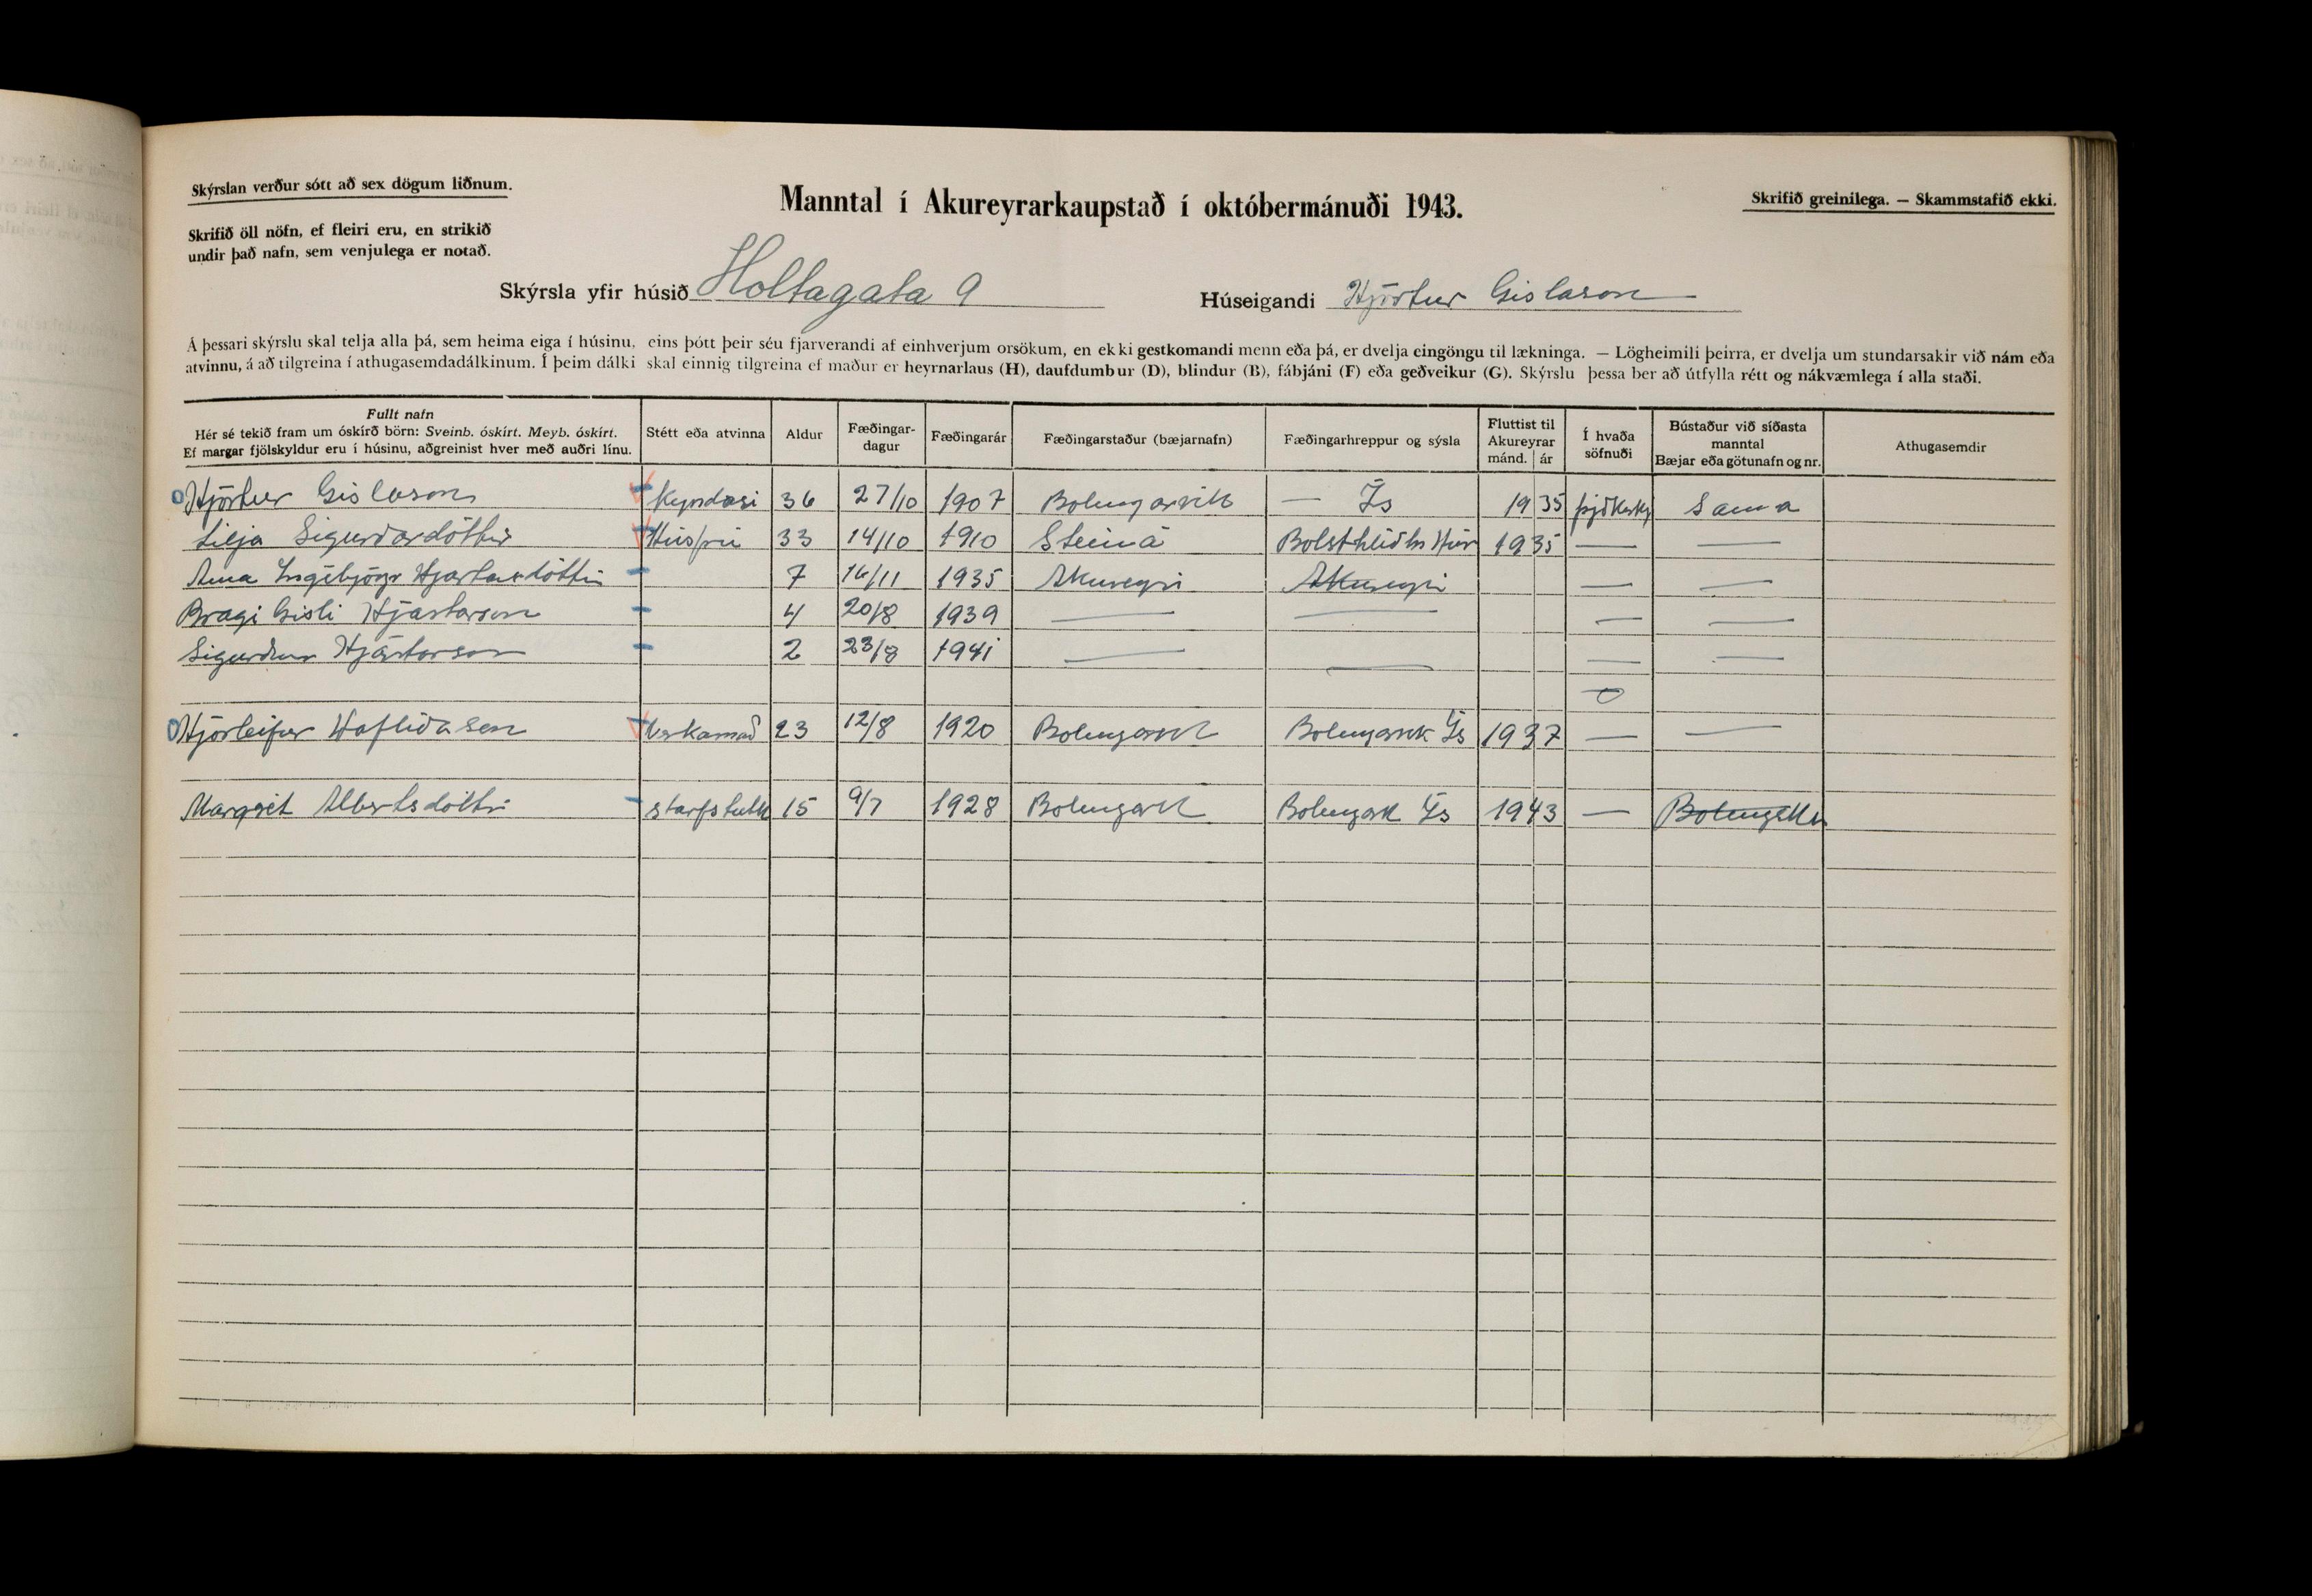 Skýrslan verður sótt að sex dögum liðnum.
Manntal í Akureyrarkaupstað í októbermánuði 1943.
Skrifið greinilega. — Skammstafið ekki.
Skrifið öll nöfn, ef fleiri eru, en strikið
undir það nafn, sem venjulega er notað.
Skýrsla yfir húsið Holtagata 9
Húseigandi Hjörtur Gislason
Á þessari skýrslu skal telja alla þá, sem heima eiga í húsinu, eins þótt þeir séu fjarverandi af einhverjum orsökum, en ekki gestkomandi menn eða þá, er dvelja eingöngu til lækninga. — Lögheimili þeirra, er dvelja um stundarsakir við nám eða
atvinnu, á að tilgreina í athugasemdadálkinum. Í þeim dálki skal einnig tilgreina ef maður er heyrnarlaus (H), daufdumbur (D), blindur (B), fábjáni (F) eða geðveikur (G). Skýrslu þessa ber að útfylla rétt og nákvæmlega í alla staði.
Fullt nafn
Hér sé tekið fram um óskírð börn: Sveinb. óskírt. Meyb. óskírt.
Ef margar fjölskyldur eru í húsinu, aðgreinist hver með auðri línu.
Stétt eða atvinna
Aldur
Fæðingar-
dagur
Fæðingarár
Fæðingarstaður (bæjarnafn)
Fæðingarhreppur og sýsla
Fluttist til
Akureyrar
mánd. ár
Í hvaða
söfnuði
Bústaður við síðasta
manntal
Bæjar eða götunafn og nr.
Athugasemdir
Hjörtur Gislason Kyndari 36 27/10 1907 Bolungarvik — Ís 1935 Sama
Lilja Sigurdardóttir Húsfrú 33 14/10 1910 Steiná 1935 — —
Anna Ingibjörg Hjartardóttir 7 16/11 1935 Akureyri Akureyri — —
Bragi Gisli Hjartarson 4 20/8 1939 — — — —
Sigurdur Hjartarson 2 23/8 1941 — — — —
Hjörleifur Haflidason Verkamað 23 12/8 1920 Bolungarvik Bolungarvik Ís 1937 — —
Margrét Albertsdóttir starfstulk 15 9/7 1928 Bolungarvk Bolungarvk Ís 1943 —